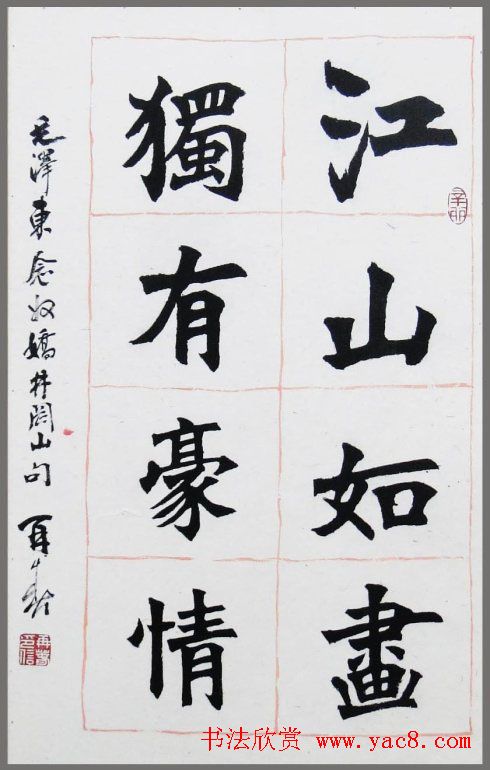 江山如畫
獨有豪情
毛澤東念奴嬌井岡山句
书法欣赏 www.yac8.com